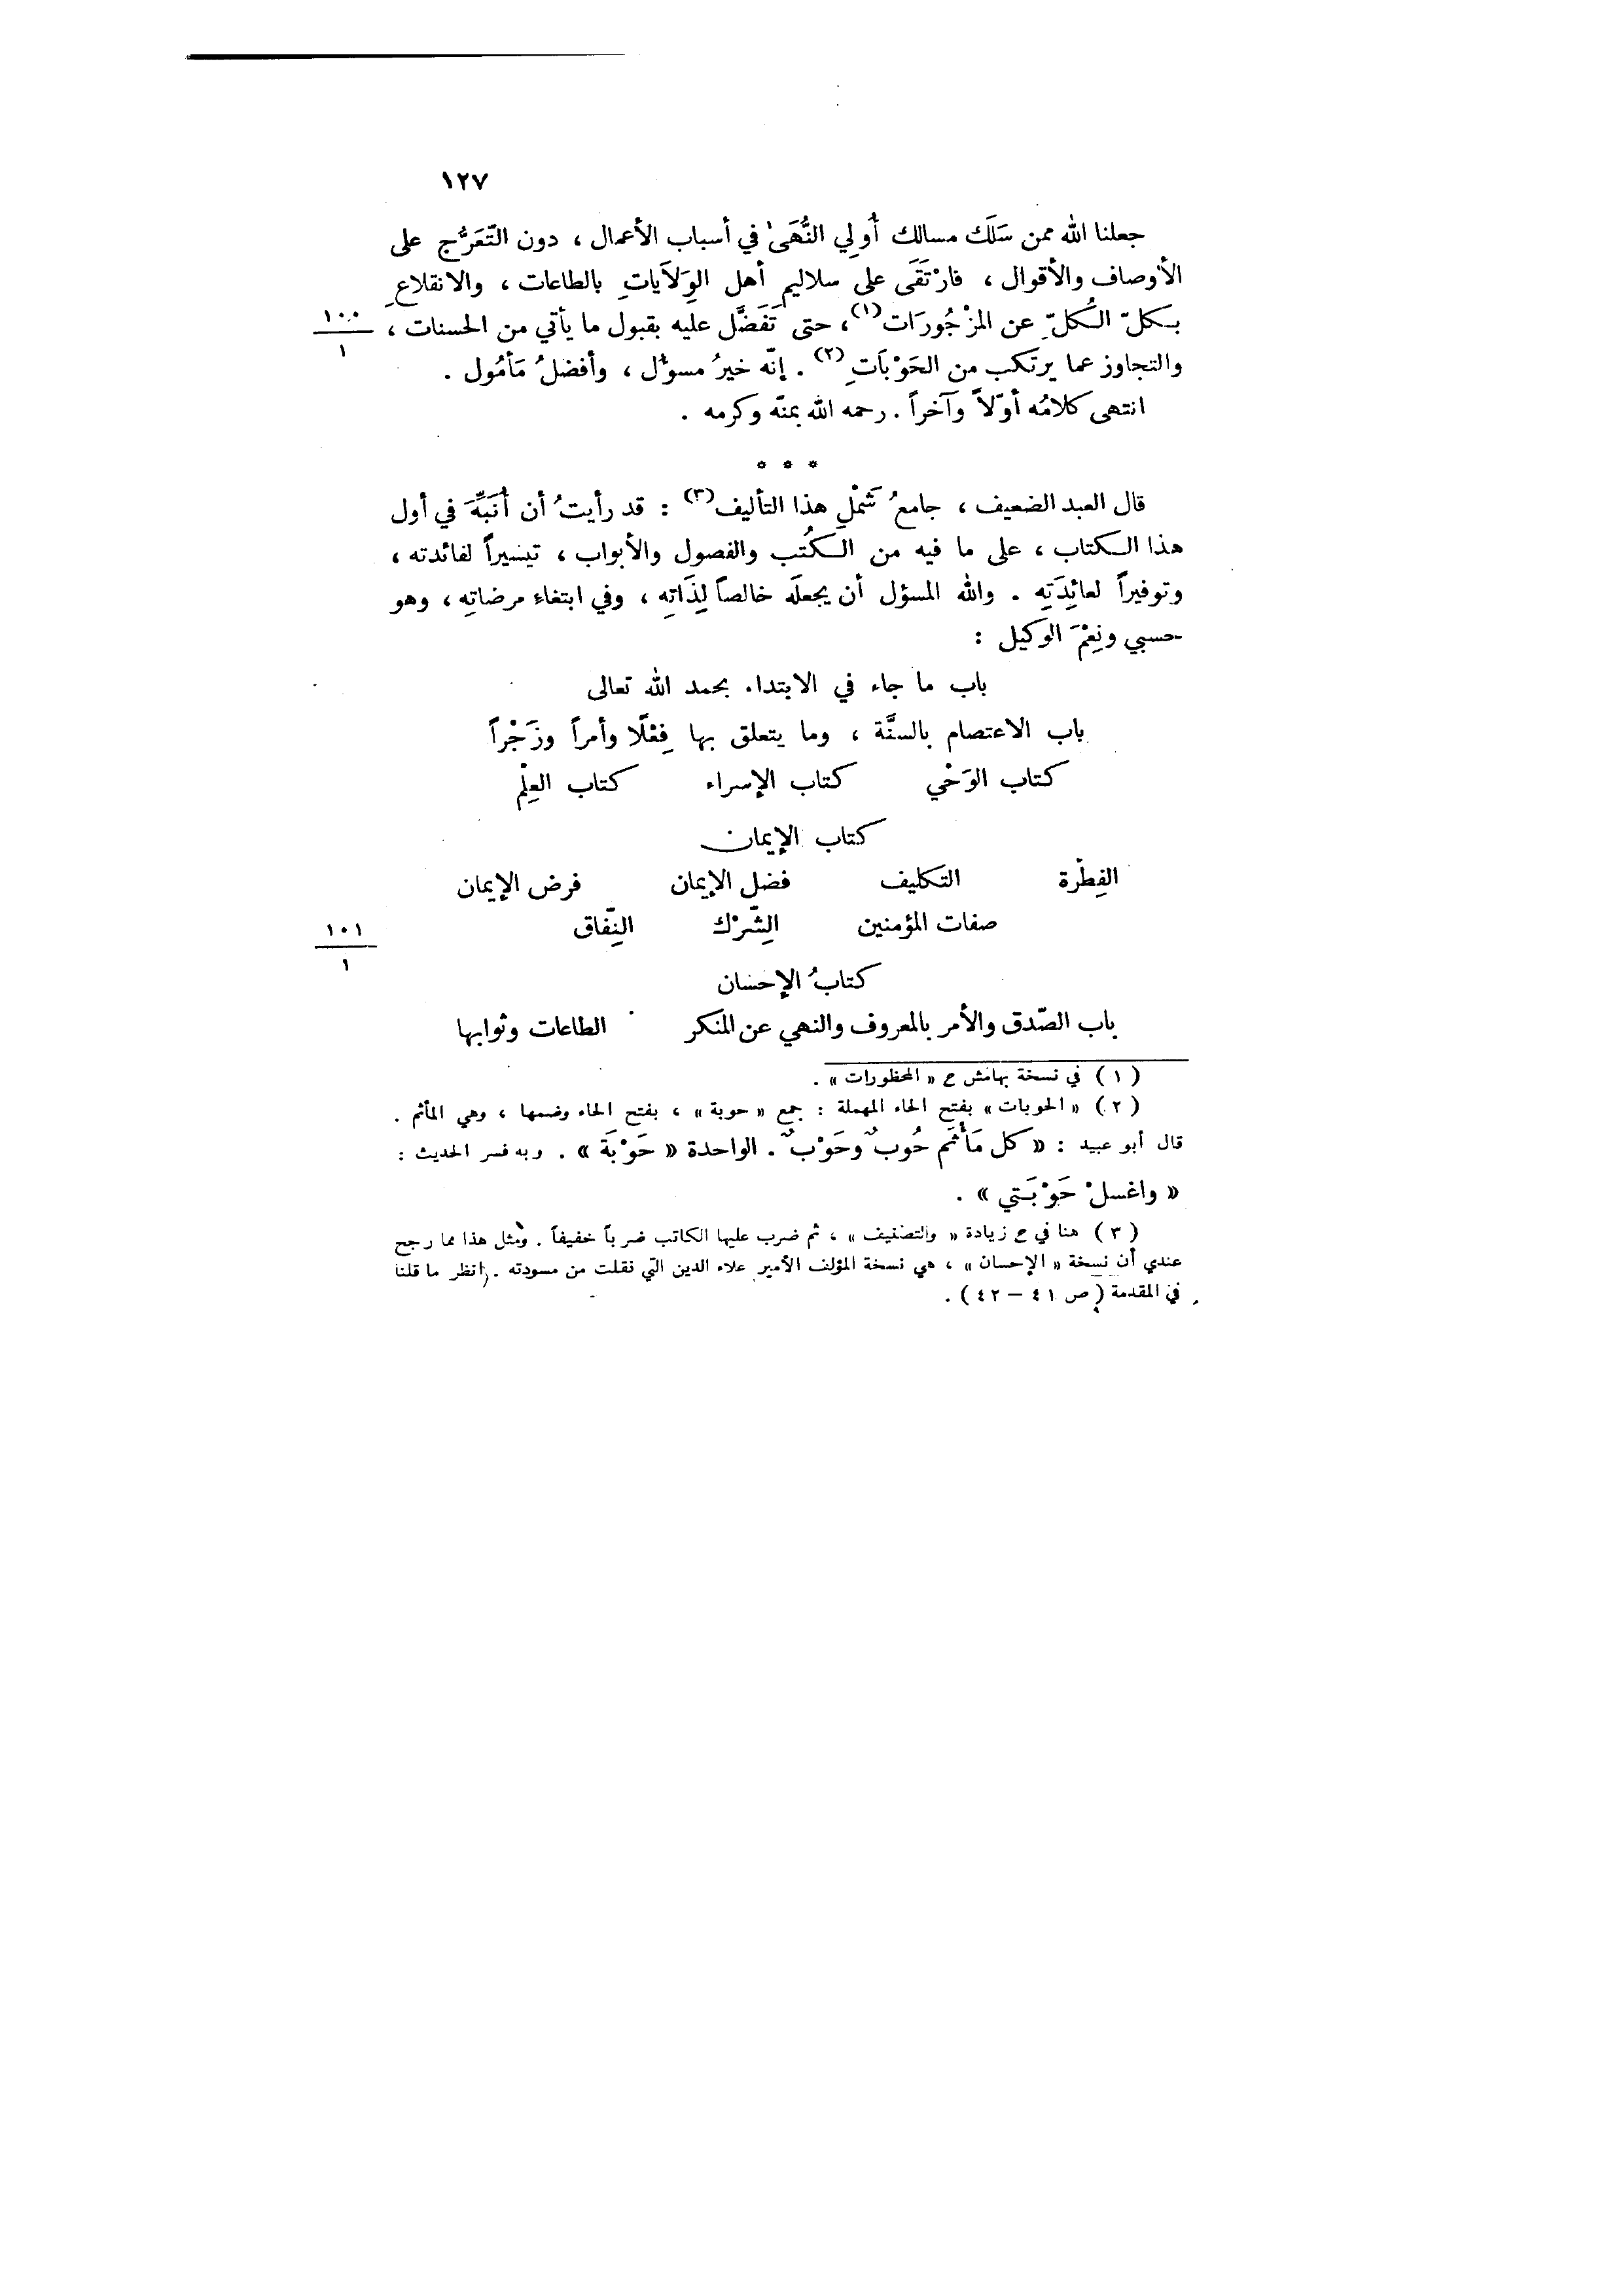 ١٢٧
جعلنا الله ممن سَلَك مسالك أُولِي النُّهَىٰ في أسباب الأعمال ، دون التّعَرُّج على
الأوصاف والأقوال ، فارْتَقَى على سلاليم أهل الوِلَاَياتِ بالطاعات ، والانقلاعِ
بكلّ الكُلِّ عن المَزْجُورَات (١)، حتى تَفَضَّل عليه بقبول ما يأتي من الحسنات ،
١٠٠
١
والتجاوز عما يرتكب من الحَوْبَاتِ (٢) . إنّه خيرُ مسؤُل ، وأفضلُ مَأمُول .
انتهى كلامُه أوّلاً وآخراً . رحمه الله بمنّه وكرمه .
* * *
قال العبد الضعيف ، جامعُ شَمْلِ هذا التأليف (٣) : قد رأيتُ أن أُنَبِّهَ في أول
هذا الكتاب ، على ما فيه من الكُتب والفصول والأبواب ، تيسيراً لفائدته ،
وتوفيراً لعائِدَتِه . والله المسؤل أن يجعلَه خالصاً لِذَاتِه ، وفي ابتغاء مرضاتِه ، وهو
حسبي ونِعْمَ الوكيل :
باب ما جاء في الابتداء بحمد الله تعالى
باب الاعتصام بالسنَّة ، وما يتعلق بها فِعْلًا وأمراً وزَجْراً
كتاب الوَحْي كتاب الإسراء كتاب العِلْم
كتاب الإيمان
الفِطْرة التكليف فضل الإيمان فرض الإيمان
صفات المؤمنين الشِّرْك النِّفاق
١٠١
١
كتابُ الإحسان
باب الصّدق والأمر بالمعروف والنهي عن المنكر الطاعات وثوابها
(١) في نسخة بهامش ح « المحظورات » .
(٢) « الحوبات » بفتح الحاء المهملة : جمع « حوبة » ، بفتح الحاء وضمها ، وهي المأثم .
قال أبو عبيد : « كل مَأْثَم حُوبٌ وحَوْبٌ . الواحدة « حَوْبَة » . وبه فسر الحديث :
« واغسلْ حَوْبَتي » .
(٣) هنا في ح زيادة « والتصنيف » ، ثم ضرب عليها الكاتب ضرباً خفيفاً . ومثل هذا مما رجح
عندي أن نسخة « الإحسان » ، هي نسخة المؤلف الأمير علاء الدين التي نقلت من مسودته . انظر ما قلنا
في المقدمة (ص ٤١ – ٤٢) .